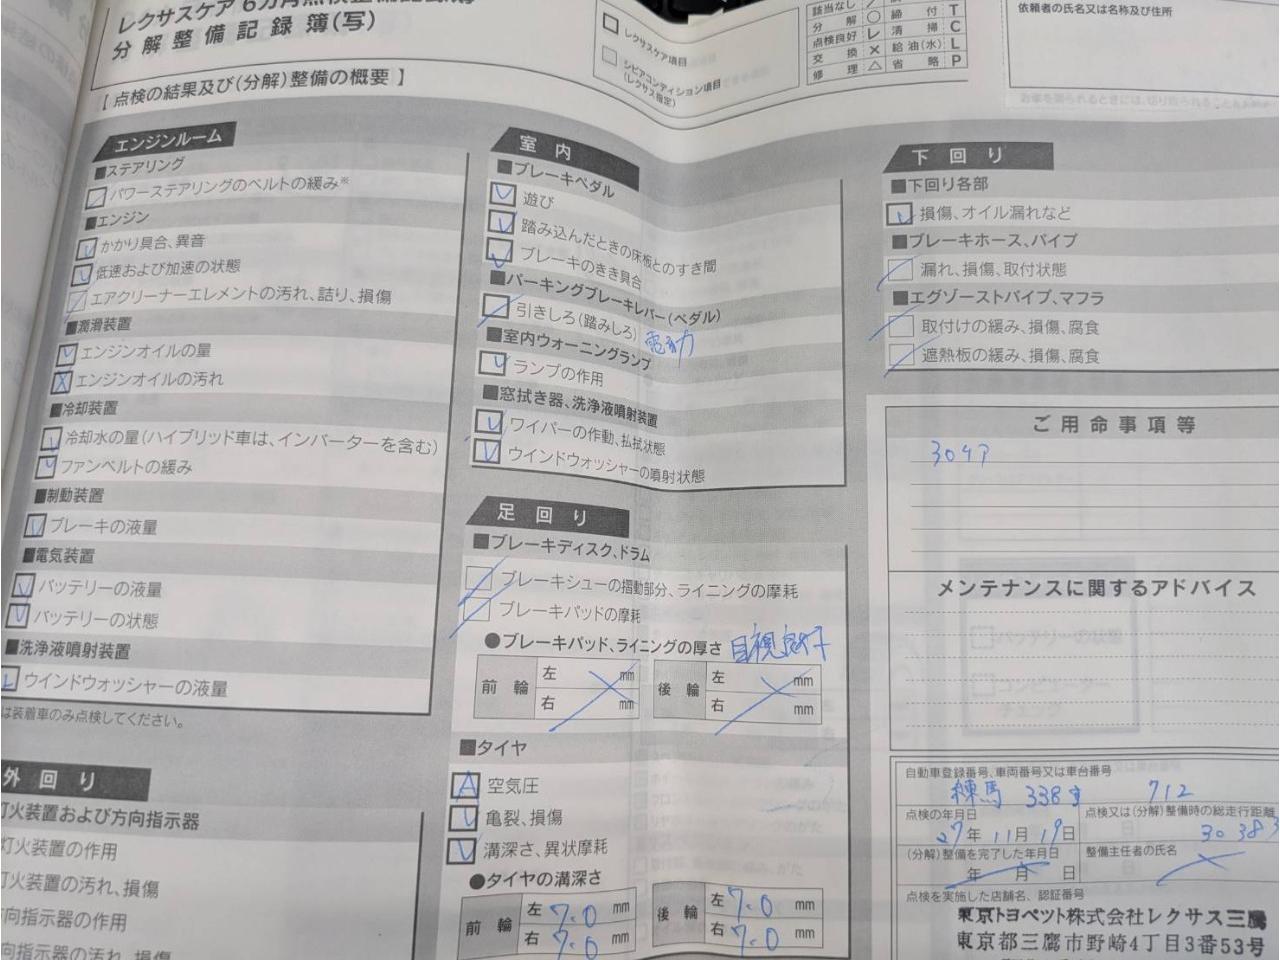 レクサスケア6カ月点検整備記録簿
分解整備記録簿(写)
【点検の結果及び(分解)整備の概要】
レクサスケア項目
シビアコンディション項目
(レクサス指定)
該当なし
分解 ○ 締付 T
点検良好 レ 清掃 C
交換 × 給油(水) L
修理 △ 省略 P
依頼者の氏名又は名称及び住所
エンジンルーム
■ステアリング
パワーステアリングのベルトの緩み※
■エンジン
かかり具合、異音
低速および加速の状態
エアクリーナーエレメントの汚れ、詰り、損傷
■潤滑装置
エンジンオイルの量
エンジンオイルの汚れ
■冷却装置
冷却水の量(ハイブリッド車は、インバーターを含む)
ファンベルトの緩み
■制動装置
ブレーキの液量
■電気装置
バッテリーの液量
バッテリーの状態
■洗浄液噴射装置
ウインドウォッシャーの液量
は装着車のみ点検してください。
外回り
灯火装置および方向指示器
灯火装置の作用
灯火装置の汚れ、損傷
方向指示器の作用
方向指示器の汚れ、損傷
室内
■ブレーキペダル
遊び
踏み込んだときの床板とのすき間
ブレーキのきき具合
■パーキングブレーキレバー(ペダル)
引きしろ(踏みしろ) 電動
■室内ウォーニングランプ
ランプの作用
■窓拭き器、洗浄液噴射装置
ワイパーの作動、払拭状態
ウインドウォッシャーの噴射状態
足回り
■ブレーキディスク、ドラム
ブレーキシューの摺動部分、ライニングの摩耗
ブレーキパッドの摩耗
●ブレーキパッド、ライニングの厚さ 目視良好
前輪 左 mm 後輪 左 mm
右 mm 右 mm
■タイヤ
A 空気圧
亀裂、損傷
溝深さ、異状摩耗
●タイヤの溝深さ
前輪 左 7.0 mm 後輪 左 7.0 mm
右 7.0 mm 右 7.0 mm
下回り
■下回り各部
損傷、オイル漏れなど
■ブレーキホース、パイプ
漏れ、損傷、取付状態
■エグゾーストパイプ、マフラ
取付けの緩み、損傷、腐食
遮熱板の緩み、損傷、腐食
ご用命事項等
メンテナンスに関するアドバイス
自動車登録番号、車両番号又は車台番号
練馬 338 す 712
点検の年月日 点検又は(分解)整備時の総走行距離
27年11月19日 30383
(分解)整備を完了した年月日 整備主任者の氏名
年 月 日
点検を実施した店舗名、認証番号
東京トヨペット株式会社レクサス三鷹
東京都三鷹市野崎4丁目3番53号